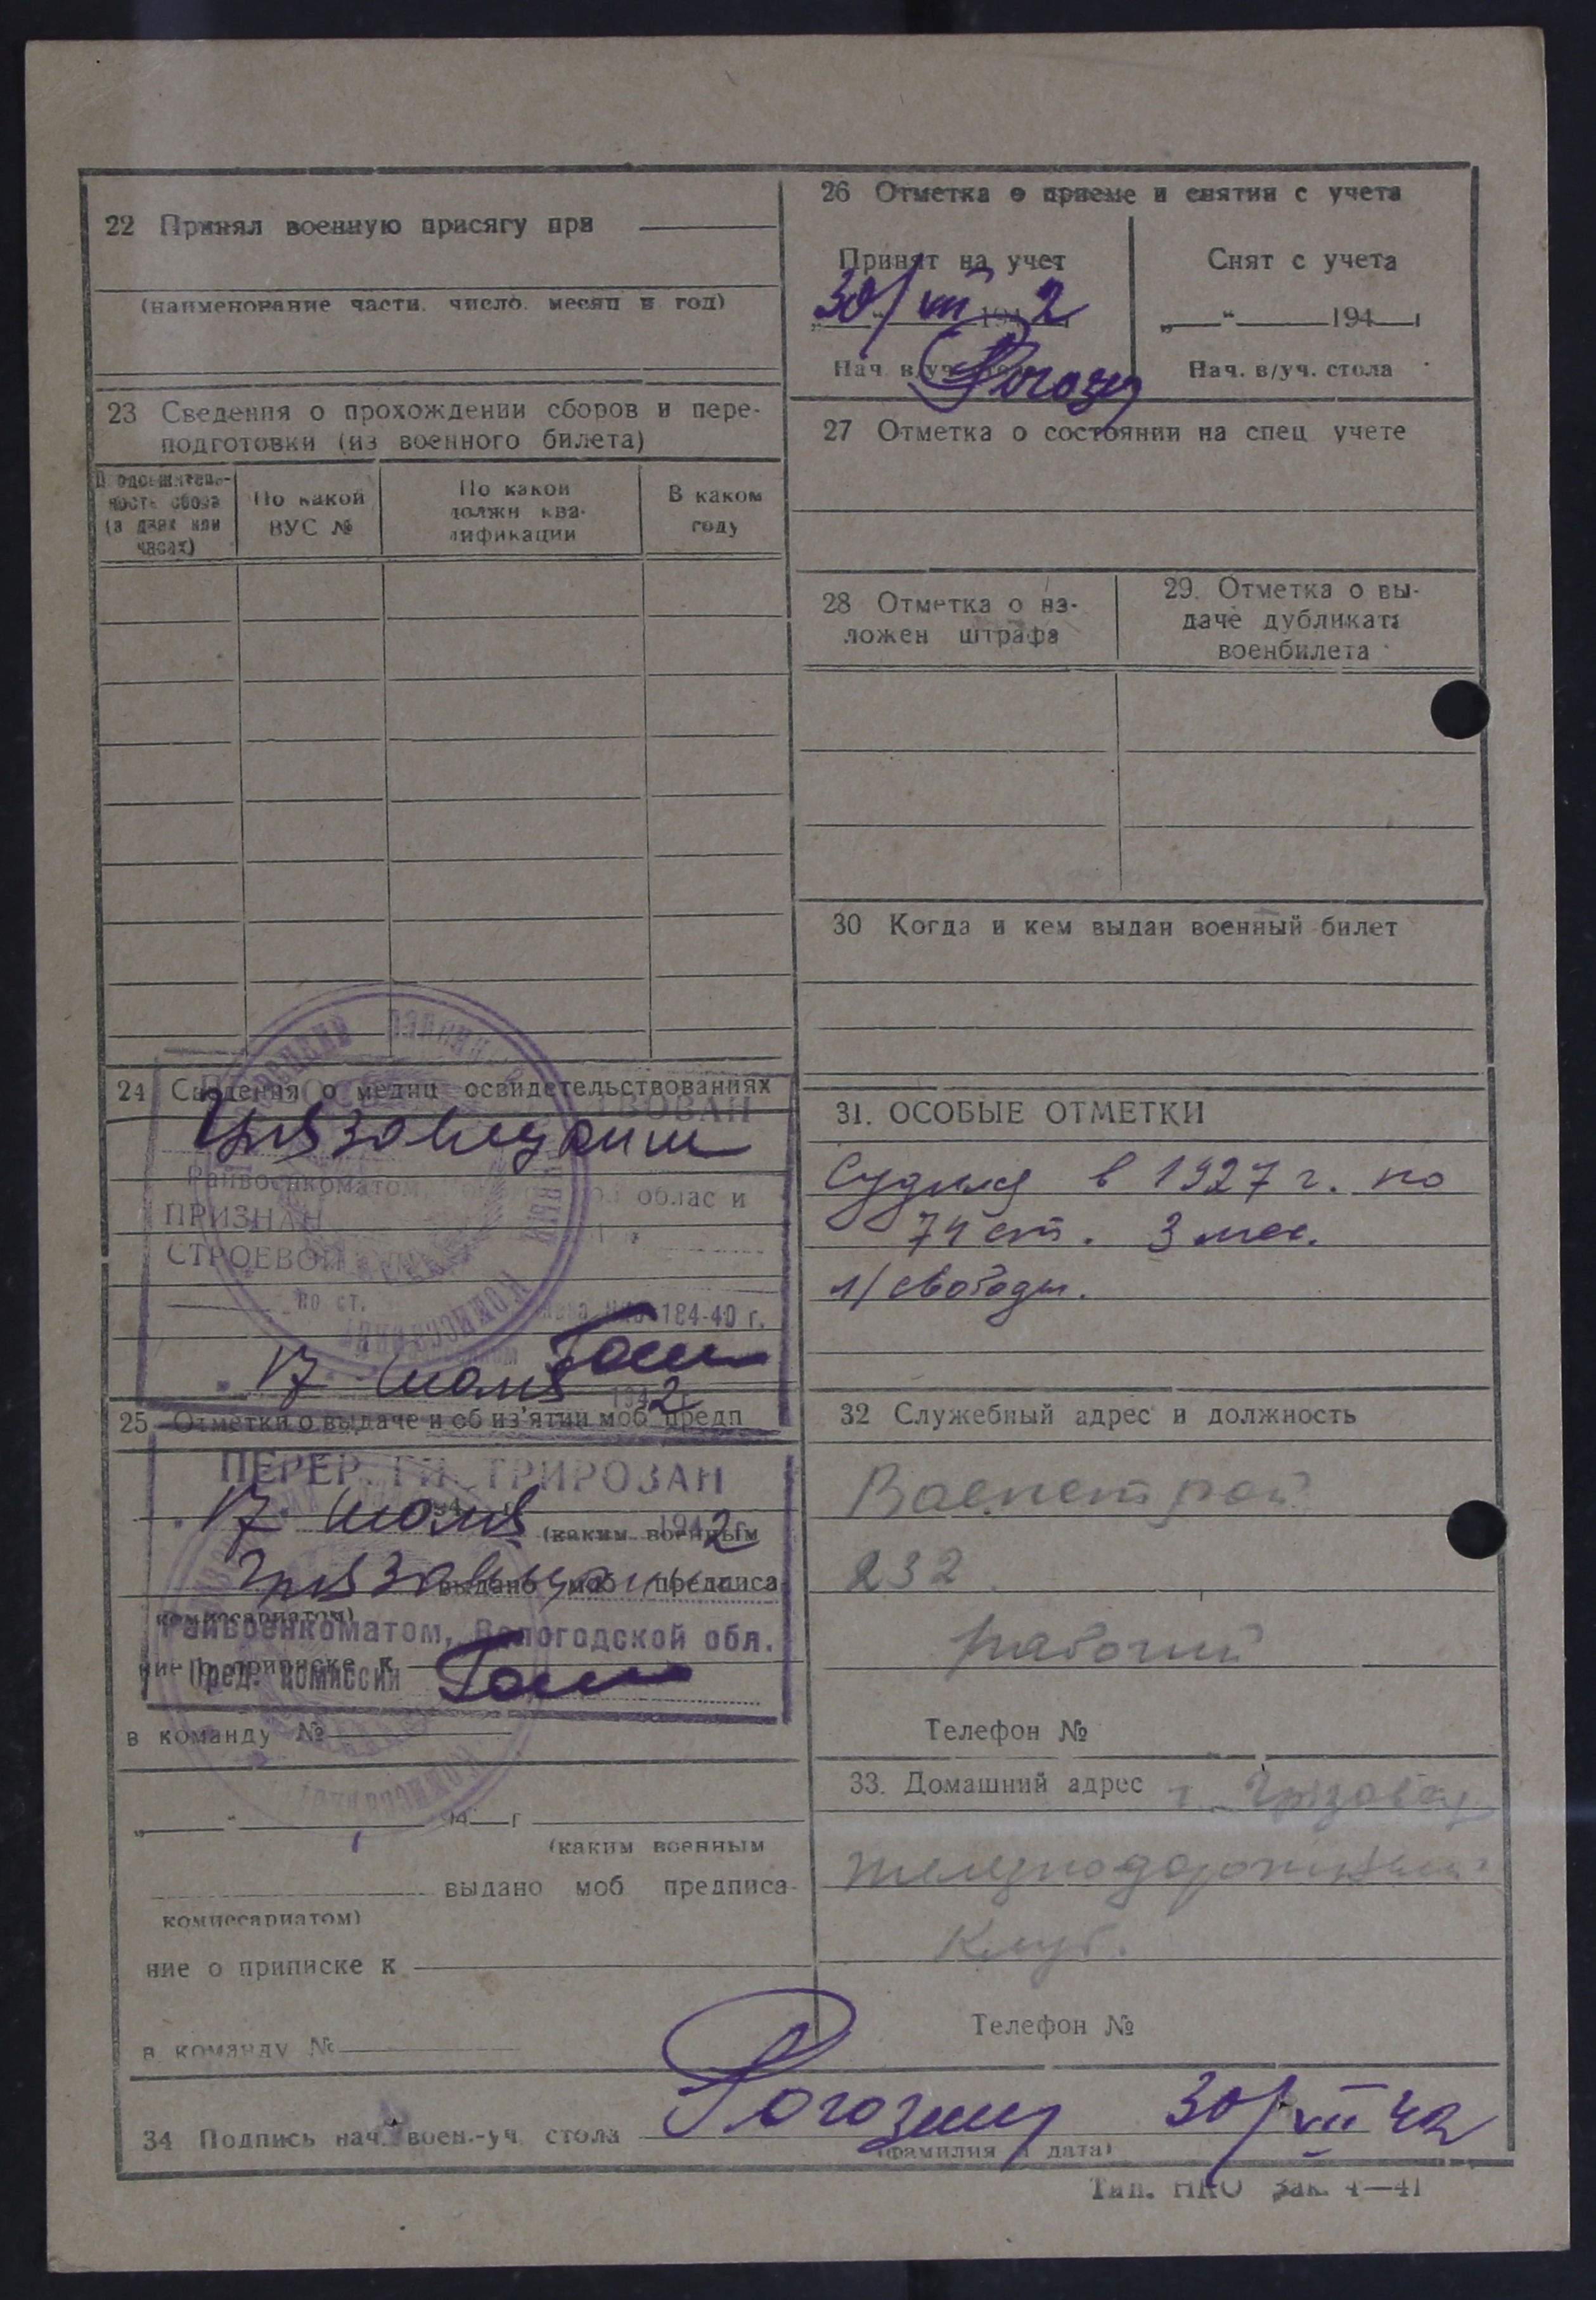 22 Принял военную присягу при
(наименование части, число, месяц и год)
23 Сведения о прохождении сборов и пере-
подготовки (из военного билета)
Продолжитель-
ность сбора
(в днях или
часах)
По какой
ВУС №
По какой
должн ква-
лификации
В каком
году
24 Сведения о медиц освидетельствованиях
Грязовецким
Райвоенкоматом, облас и
ПРИЗНАН
СТРОЕВОЙ
по ст. 184-40 г.
17 июля 1942 г.
25 Отметки о выдаче и об из'ятии моб предп
ПЕРЕРЕГИСТРИРОВАН
17 июля 1942 г.
(каким военным
Грязовецким
выдано моб предписа
комиссариатом)
Райвоенкоматом, Вологодской обл.
ние о приписке к
Пред. комиссии
в команду №
„ “ 194 г
(каким военным
выдано моб предписа-
комиссариатом)
ние о приписке к
в команду №
26 Отметка о приеме и снятии с учета
Принят на учет
30/VII 1942
Нач в/уч. стола
Снят с учета
„ “ 194 г
Нач. в/уч. стола
27 Отметка о состоянии на спец учете
28 Отметка о на-
ложен штрафа
29. Отметка о вы-
даче дубликата
военбилета
30 Когда и кем выдан военный билет
31. ОСОБЫЕ ОТМЕТКИ
Судим в 1927 г. по
74 ст. 3 мес.
л/свободы.
32 Служебный адрес и должность
Военстрой
232
рабочий
Телефон №
33. Домашний адрес г. Грязовец
железнодорожный
клуб.
Телефон №
34 Подпись нач. воен.-уч. стола Рогозин 30/VII 42
(фамилия и дата)
Тип. НКО Зак. 4—41